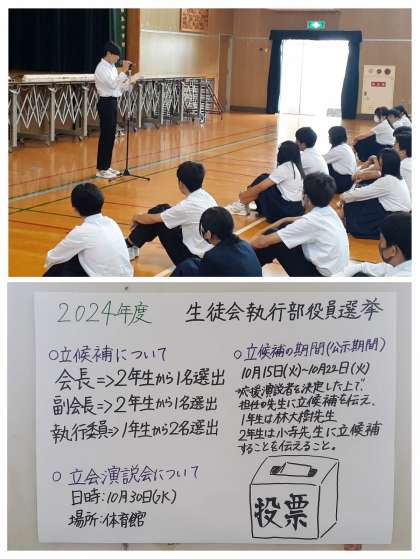 2024年度 生徒会執行部役員選挙
○立候補について
会長=>2年生から1名選出
副会長=>2年生から1名選出
執行委員=>1年生から2名選出
○立会演説会について
日時:10月30日(水)
場所:体育館
○立候補の期間(公示期間)
10月15日(火)~10月22日(火)
応援演説者を決定した上で、
担任の先生に立候補を伝え、
1年生は林大樹先生
2年生は小寺先生に立候補
することを伝えること。
投票